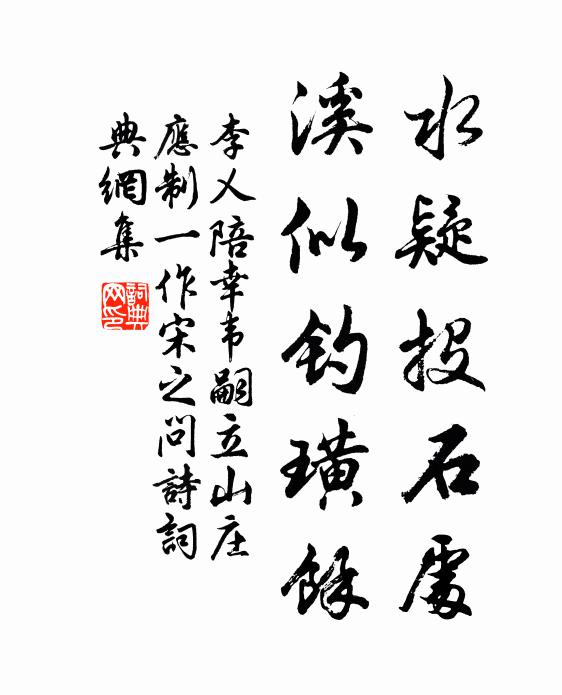 水疑投石處
溪似釣璜餘
李乂陪幸韦嗣立山庄
應制一作宋之问詩詞
典網集
詞典网印